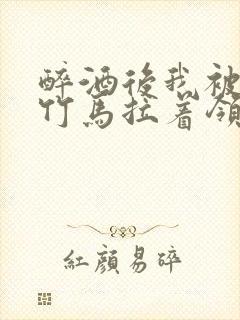 醉酒後我被
竹馬拉着領
紅顏易碎